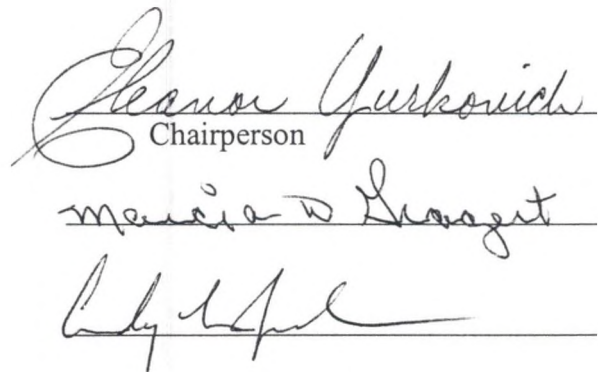 Eleanor Yurkovich
Chairperson
Marcia D Gragert